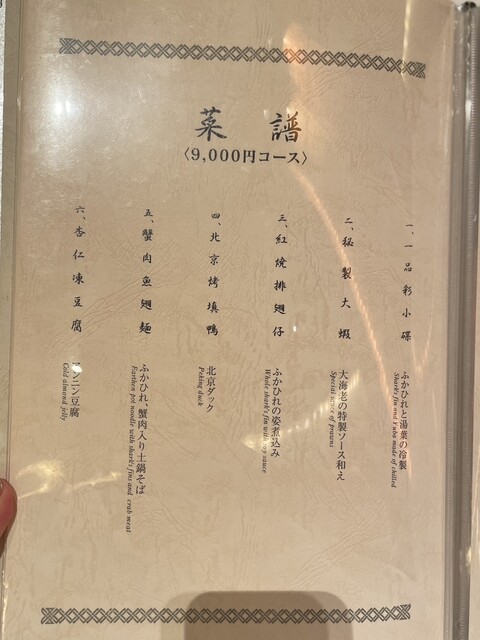 菜譜
〈9,000円コース〉
一、一品彩小碟
ふかひれと湯葉の冷製
Shark's fin and Yuba made of chilled
二、秘製大蝦
大海老の特製ソース和え
Special sauce of prawns
三、紅焼排翅仔
ふかひれの姿煮込み
Whole shark's fin with soy sauce
四、北京烤填鴨
北京ダック
Peking duck
五、蟹肉魚翅麺
ふかひれ、蟹肉入り土鍋そば
Earthen pot noodle with shark's fins and crab meat
六、杏仁凍豆腐
アンニン豆腐
Cold almond jelly